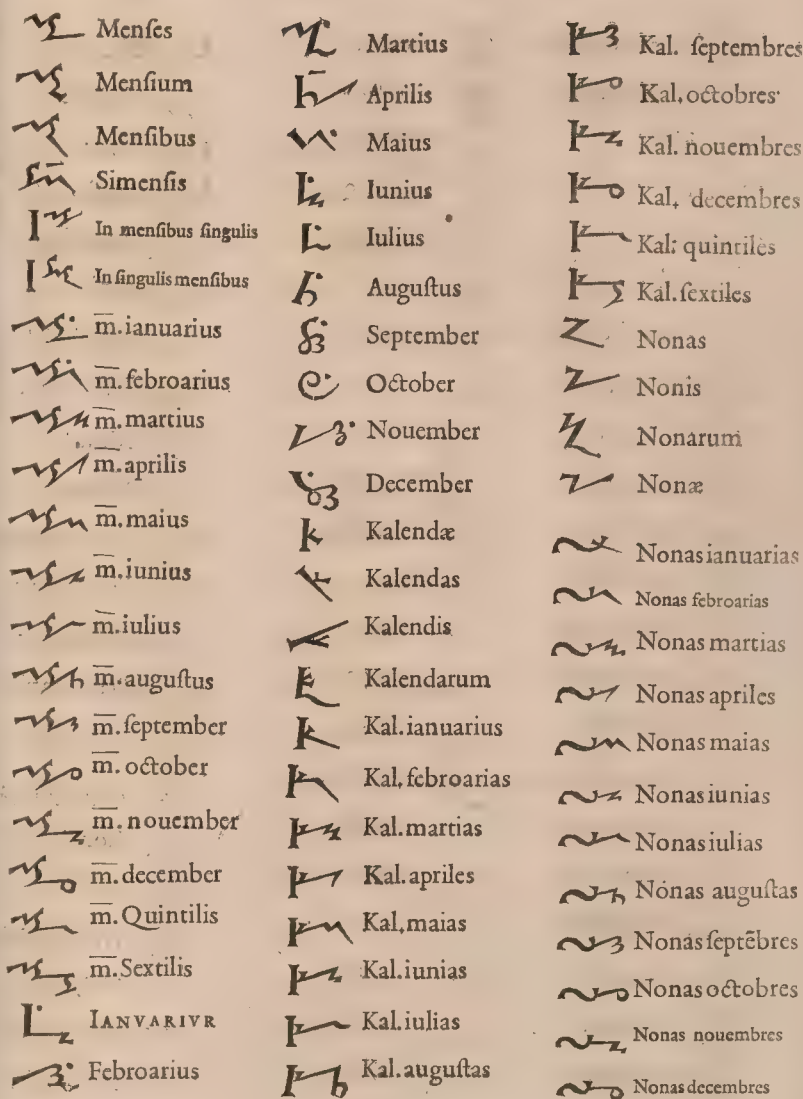 Menſes
Menſium
Menſibus
Simenſis
In menſibus ſingulis
In ſingulis menſibus
m̅. ianuarius
m̅. febroarius
m̅. martius
m̅. aprilis
m̅. maius
m̅. iunius
m̅. iulius
m̅. auguſtus
m̅. ſeptember
m̅. october
m̅. nouember
m̅. december
m̅. Quintilis
m̅. Sextilis
IANVARIVR
Febroarius
Martius
Aprilis
Maius
Iunius
Iulius
Auguſtus
September
October
Nouember
December
Kalendæ
Kalendas
Kalendis
Kalendarum
Kal. ianuarius
Kal, febroarias
Kal. martias
Kal. apriles
Kal, maias
Kal. iunias
Kal. iulias
Kal. auguſtas
Kal. ſeptembres
Kal, octobres
Kal. nouembres
Kal, decembres
Kal: quintiles
Kal. ſextiles
Nonas
Nonis
Nonarum
Nonæ
Nonas ianuarias
Nonas febroarias
Nonas martias
Nonas apriles
Nonas maias
Nonas iunias
Nonas iulias
Nonas auguſtas
Nonas ſeptẽbres
Nonas octobres
Nonas nouembres
Nonas decembres